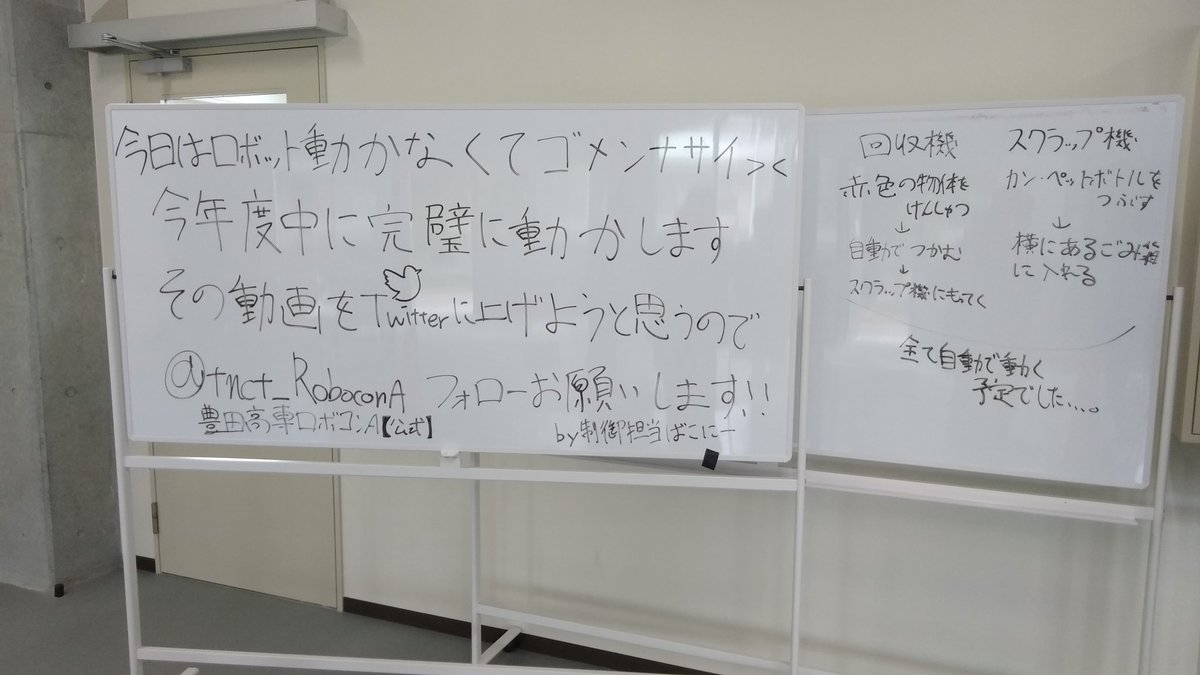 今日はロボット動かなくてゴメンナサイ><
今年度中に完璧に動かします
その動画をTwitterに上げようと思うので
@tnct_RoboconA フォローお願いします!!
豊田高専ロボコンA【公式】
by制御担当ばこにー
回収機
赤色の物体を
けんしゅつ
↓
自動でつかむ
↓
スクラップ機にもってく
スクラップ機
カン・ペットボトルを
つぶす
↓
横にあるごみ箱
に入れる
全て自動で動く
予定でした....。